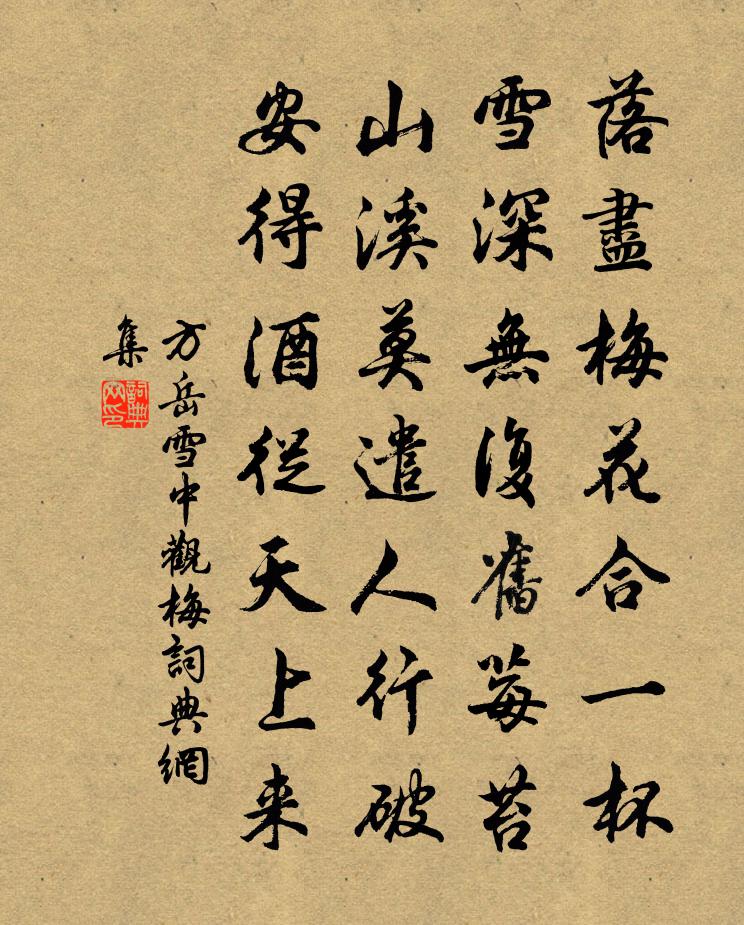 落盡梅花合一杯
雪深無復舊莓苔
山溪莫遣人行破
安得酒從天上来
方岳雪中觀梅詞典網
集
詞典
网印